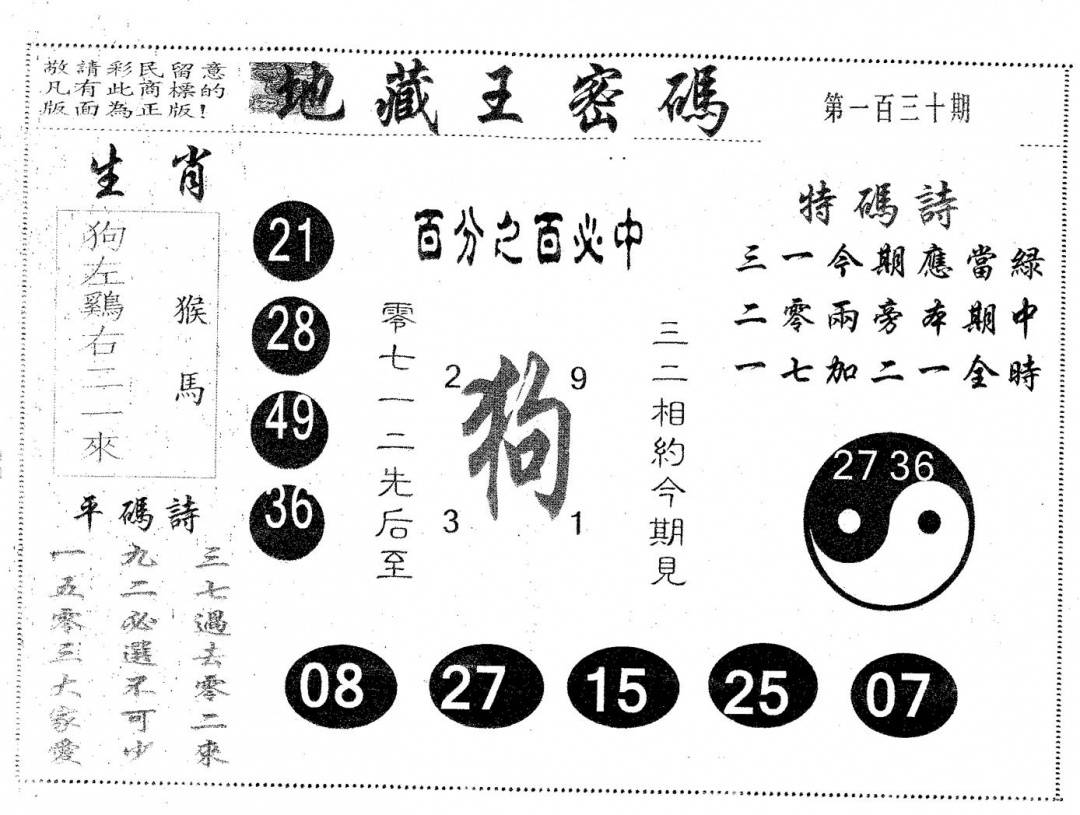 敬請彩民留意
凡有此商標的
版面為正版!
地藏王密碼
第一百三十期
生肖
狗左鷄右二一來
猴馬
平碼詩
三七過去零二來
九二必選不可少
一五零三大家愛
21
28
49
36
百分之百必中
零七一二先后至
2
9
狗
3
1
三二相約今期見
特碼詩
三一今期應當綠
二零兩旁本期中
一七加二一全時
27 36
08
27
15
25
07